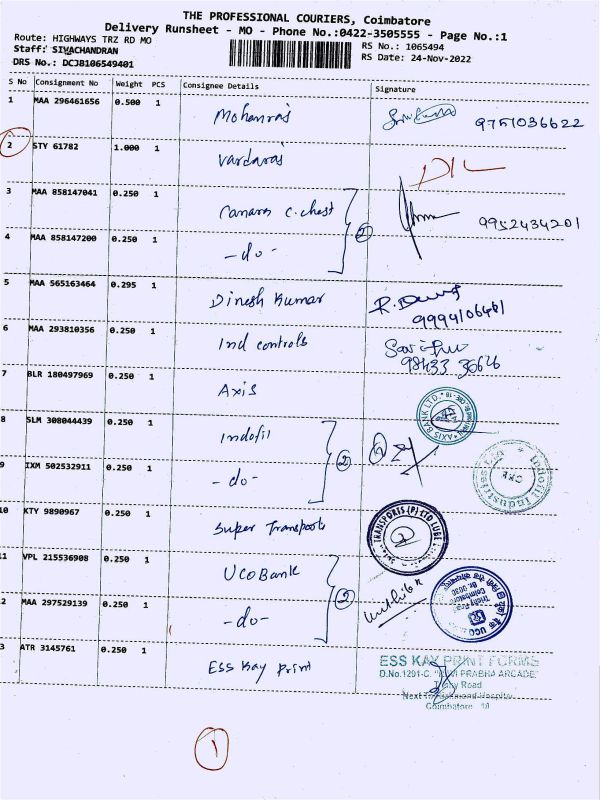 THE PROFESSIONAL COURIERS, Coimbatore
Delivery Runsheet - MO - Phone No.:0422-3505555 - Page No.:1
Route: HIGHWAYS TRZ RD MO
RS No.: 1065494
Staff: SIVACHANDRAN
RS Date: 24-Nov-2022
DRS No.: DCJB106549401
S No Consignment No Weight PCS Consignee Details Signature
1 MAA 296461656 0.500 1 Mohanraj 9751036622
2 STY 61782 1.000 1 Vardaraj
3 MAA 858147041 0.250 1 Canara C. chest 9952434201
4 MAA 858147200 0.250 1 -do- 2
5 MAA 565163464 0.295 1 Dinesh Kumar 9994106481
6 MAA 293810356 0.250 1 Ind controls 98433 36626
7 BLR 180497969 0.250 1 Axis
AXIS BANK LTD.
8 SLM 308044439 0.250 1 Indofil
9 IXM 502532911 0.250 1 -do- 2
Indofil Industries
10 KTY 9890967 0.250 1 Super Transports
TRANSPORTS (P) LTD
11 VPL 215536908 0.250 1 UCO Bank
12 MAA 297529139 0.250 1 -do- 2
13 ATR 3145761 0.250 1 Ess Kay Print
ESS KAY PRINT FORMS
D.No.1291-C, PRABHA ARCADE"
Road
Next Hospital
Coimbatore 18
1